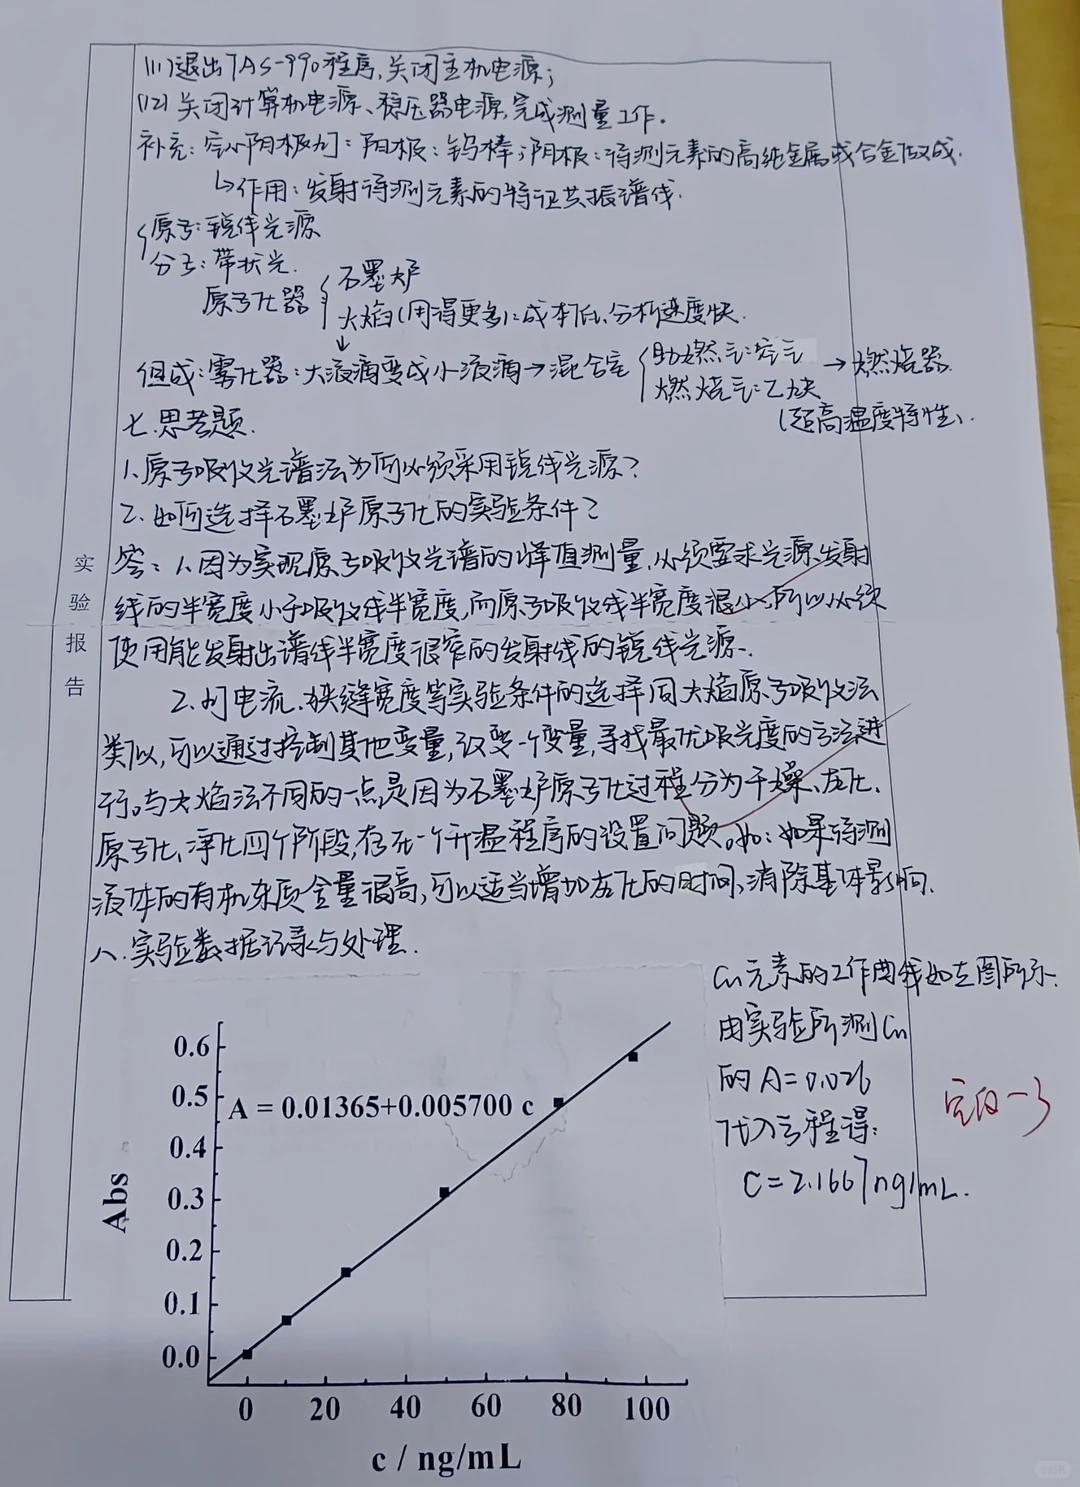 (11)退出TAS-990程序,关闭主机电源;
(12)关闭计算机电源、稳压器电源,完成测量工作。
补充:空心阴极灯:阳极:钨棒;阴极:待测元素的高纯金属或合金做成.
↳作用:发射待测元素的特征共振谱线.
原子:锐线光源
分子:带状光.
原子化器 石墨炉
火焰(用得更多):成本低、分析速度快.
↓
组成:雾化器:大液滴变成小液滴→混合室 助燃气:空气 →燃烧器.
燃烧气:乙炔
(超高温度特性).
七.思考题.
1.原子吸收光谱法为何必须采用锐线光源?
2.如何选择石墨炉原子化的实验条件?
答:1.因为实现原子吸收光谱的峰值测量,必须要求光源发射
线的半宽度小于吸收线半宽度,而原子吸收线半宽度很小,所以必须
使用能发射出谱线半宽度很窄的发射线的锐线光源.
2.灯电流、狭缝宽度等实验条件的选择同火焰原子吸收法
类似,可以通过控制其他变量,改变一个变量,寻找最优吸光度的方法进
行。与火焰法不同的一点是因为石墨炉原子化过程分为干燥、灰化、
原子化、净化四个阶段,存在一个升温程序的设置问题。如:如果待测
液体的有机杂质含量很高,可以适当增加灰化的时间,消除基体影响.
八.实验数据记录与处理.
实验报告
Cu元素的工作曲线如左图所示.
由实验所测Cu
的A=0.026
代入方程得:
C=2.1667ng/mL.
A = 0.01365+0.005700 c
Abs
0.6
0.5
0.4
0.3
0.2
0.1
0.0
0 20 40 60 80 100
c / ng/mL